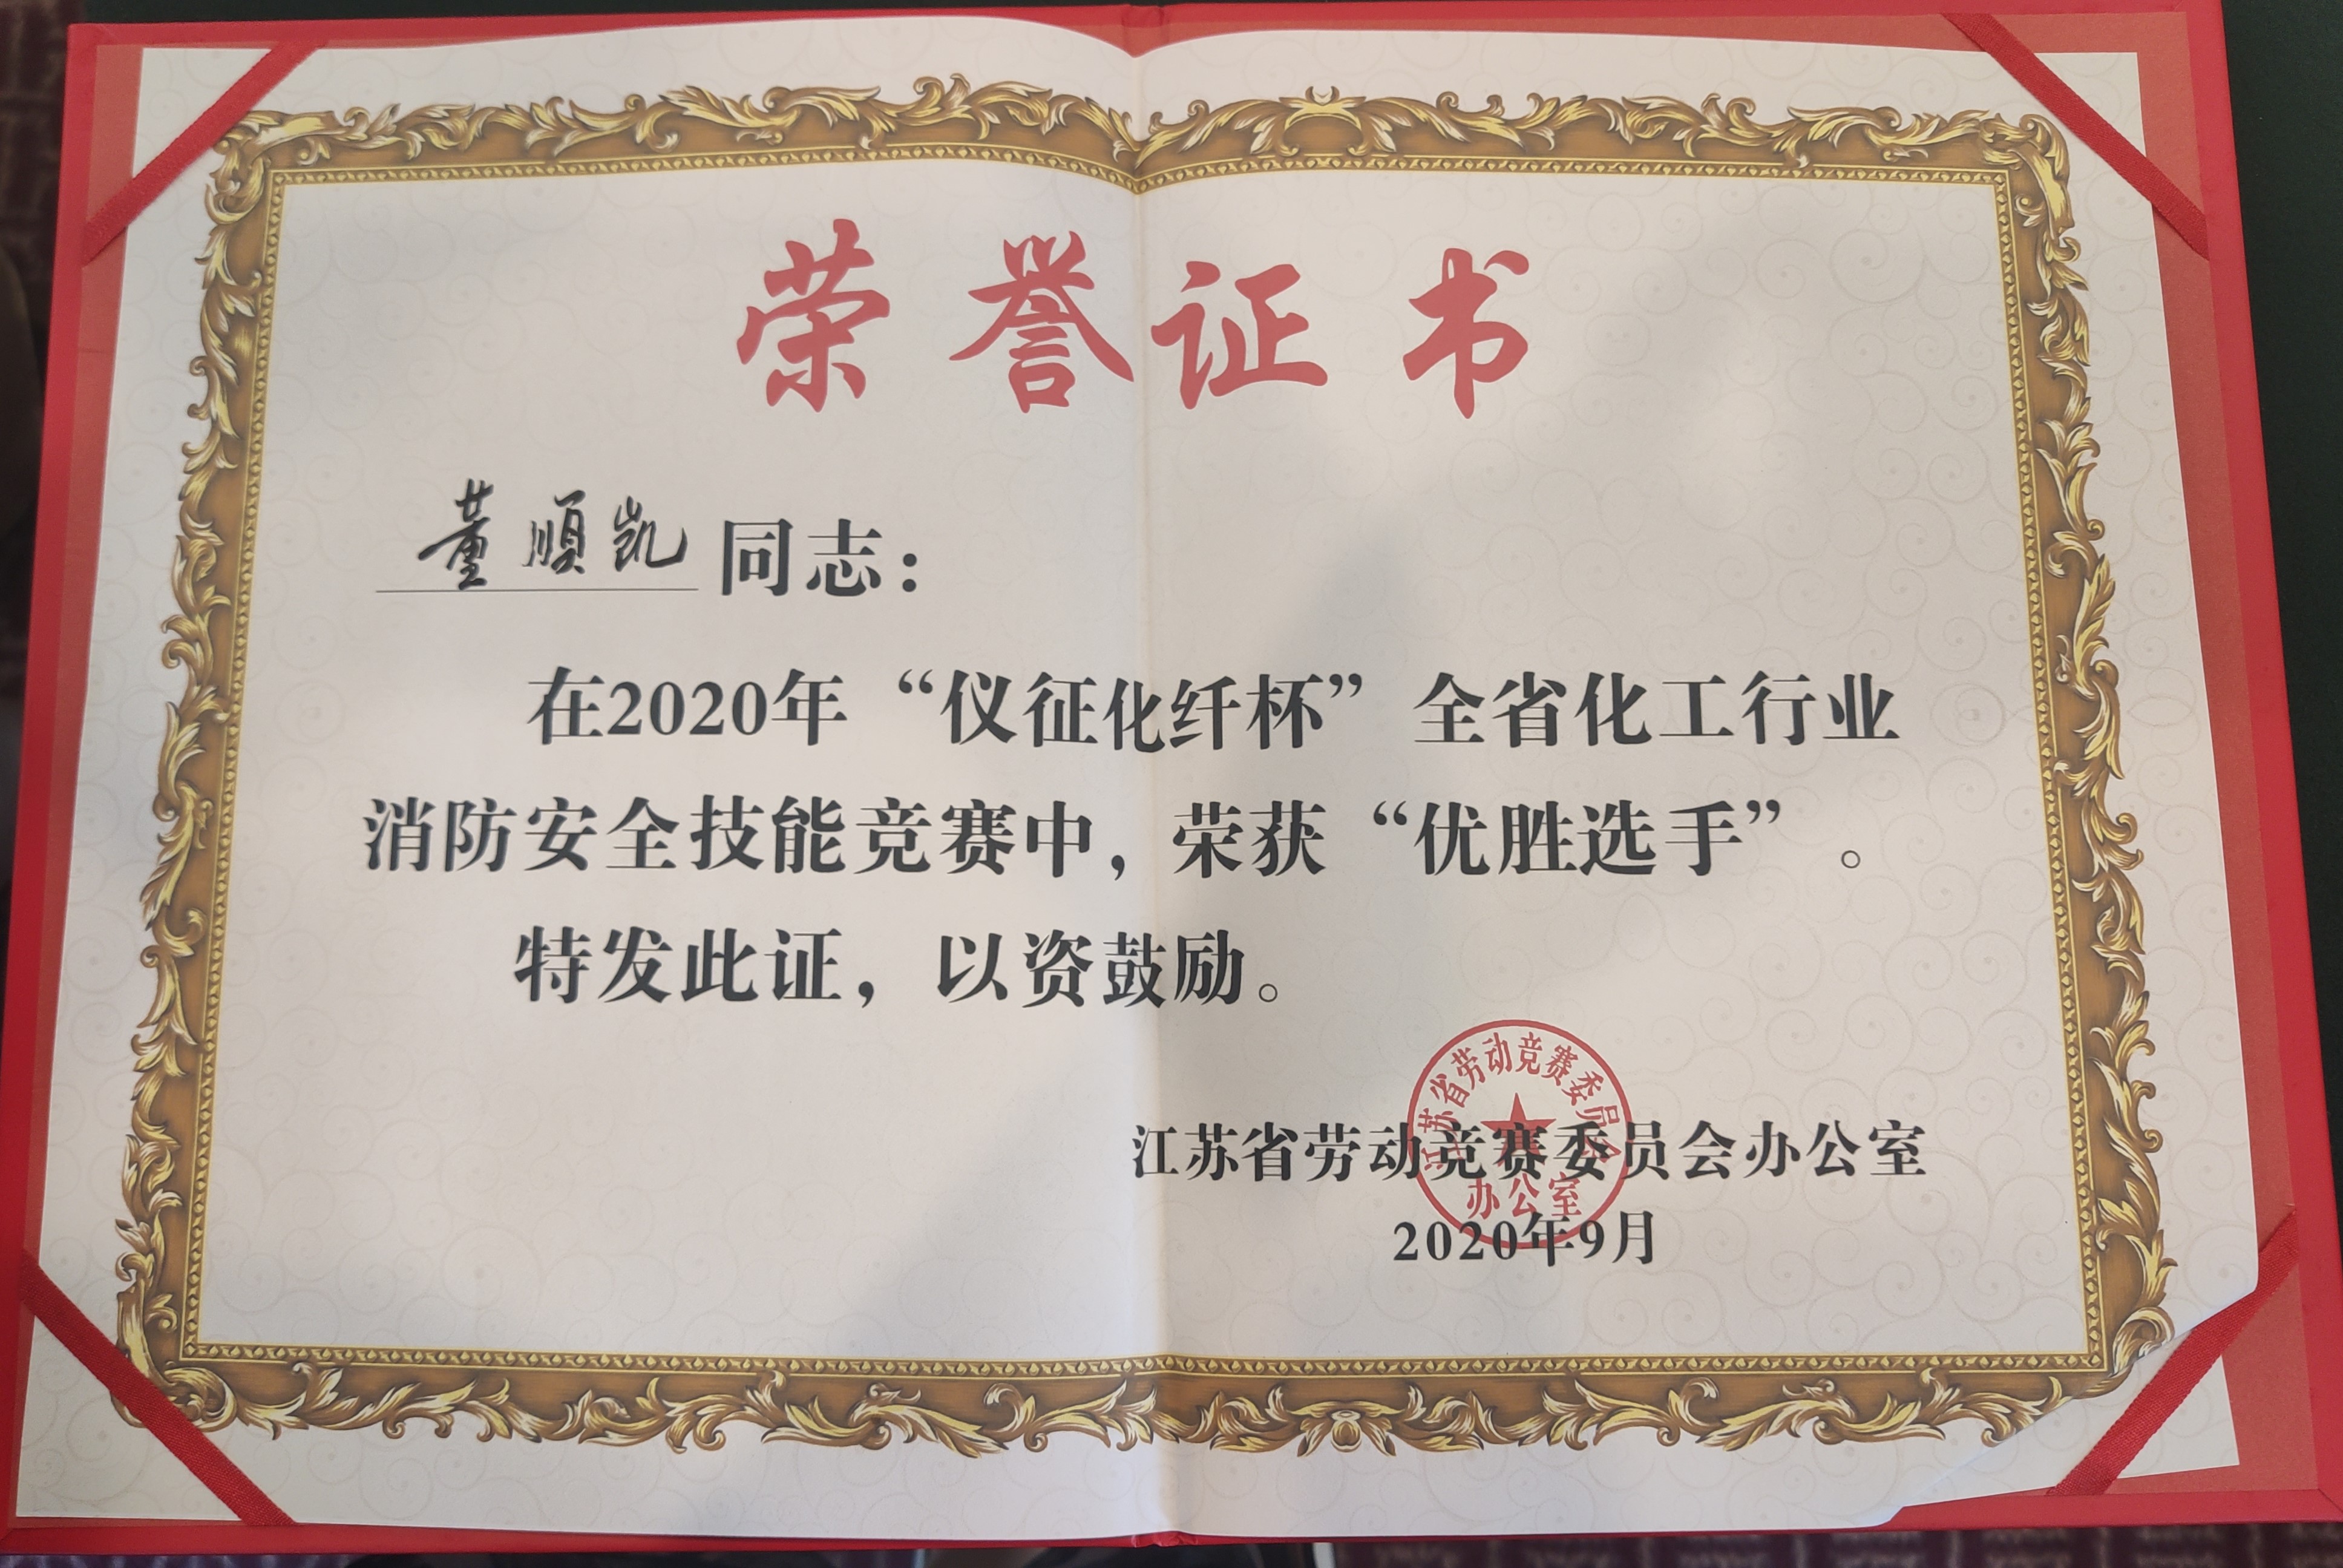 荣誉证书
董顺凯同志：
在2020年“仪征化纤杯”全省化工行业
消防安全技能竞赛中，荣获“优胜选手”。
特发此证，以资鼓励。
江苏省劳动竞赛委员会
办公室
江苏省劳动竞赛委员会办公室
2020年9月